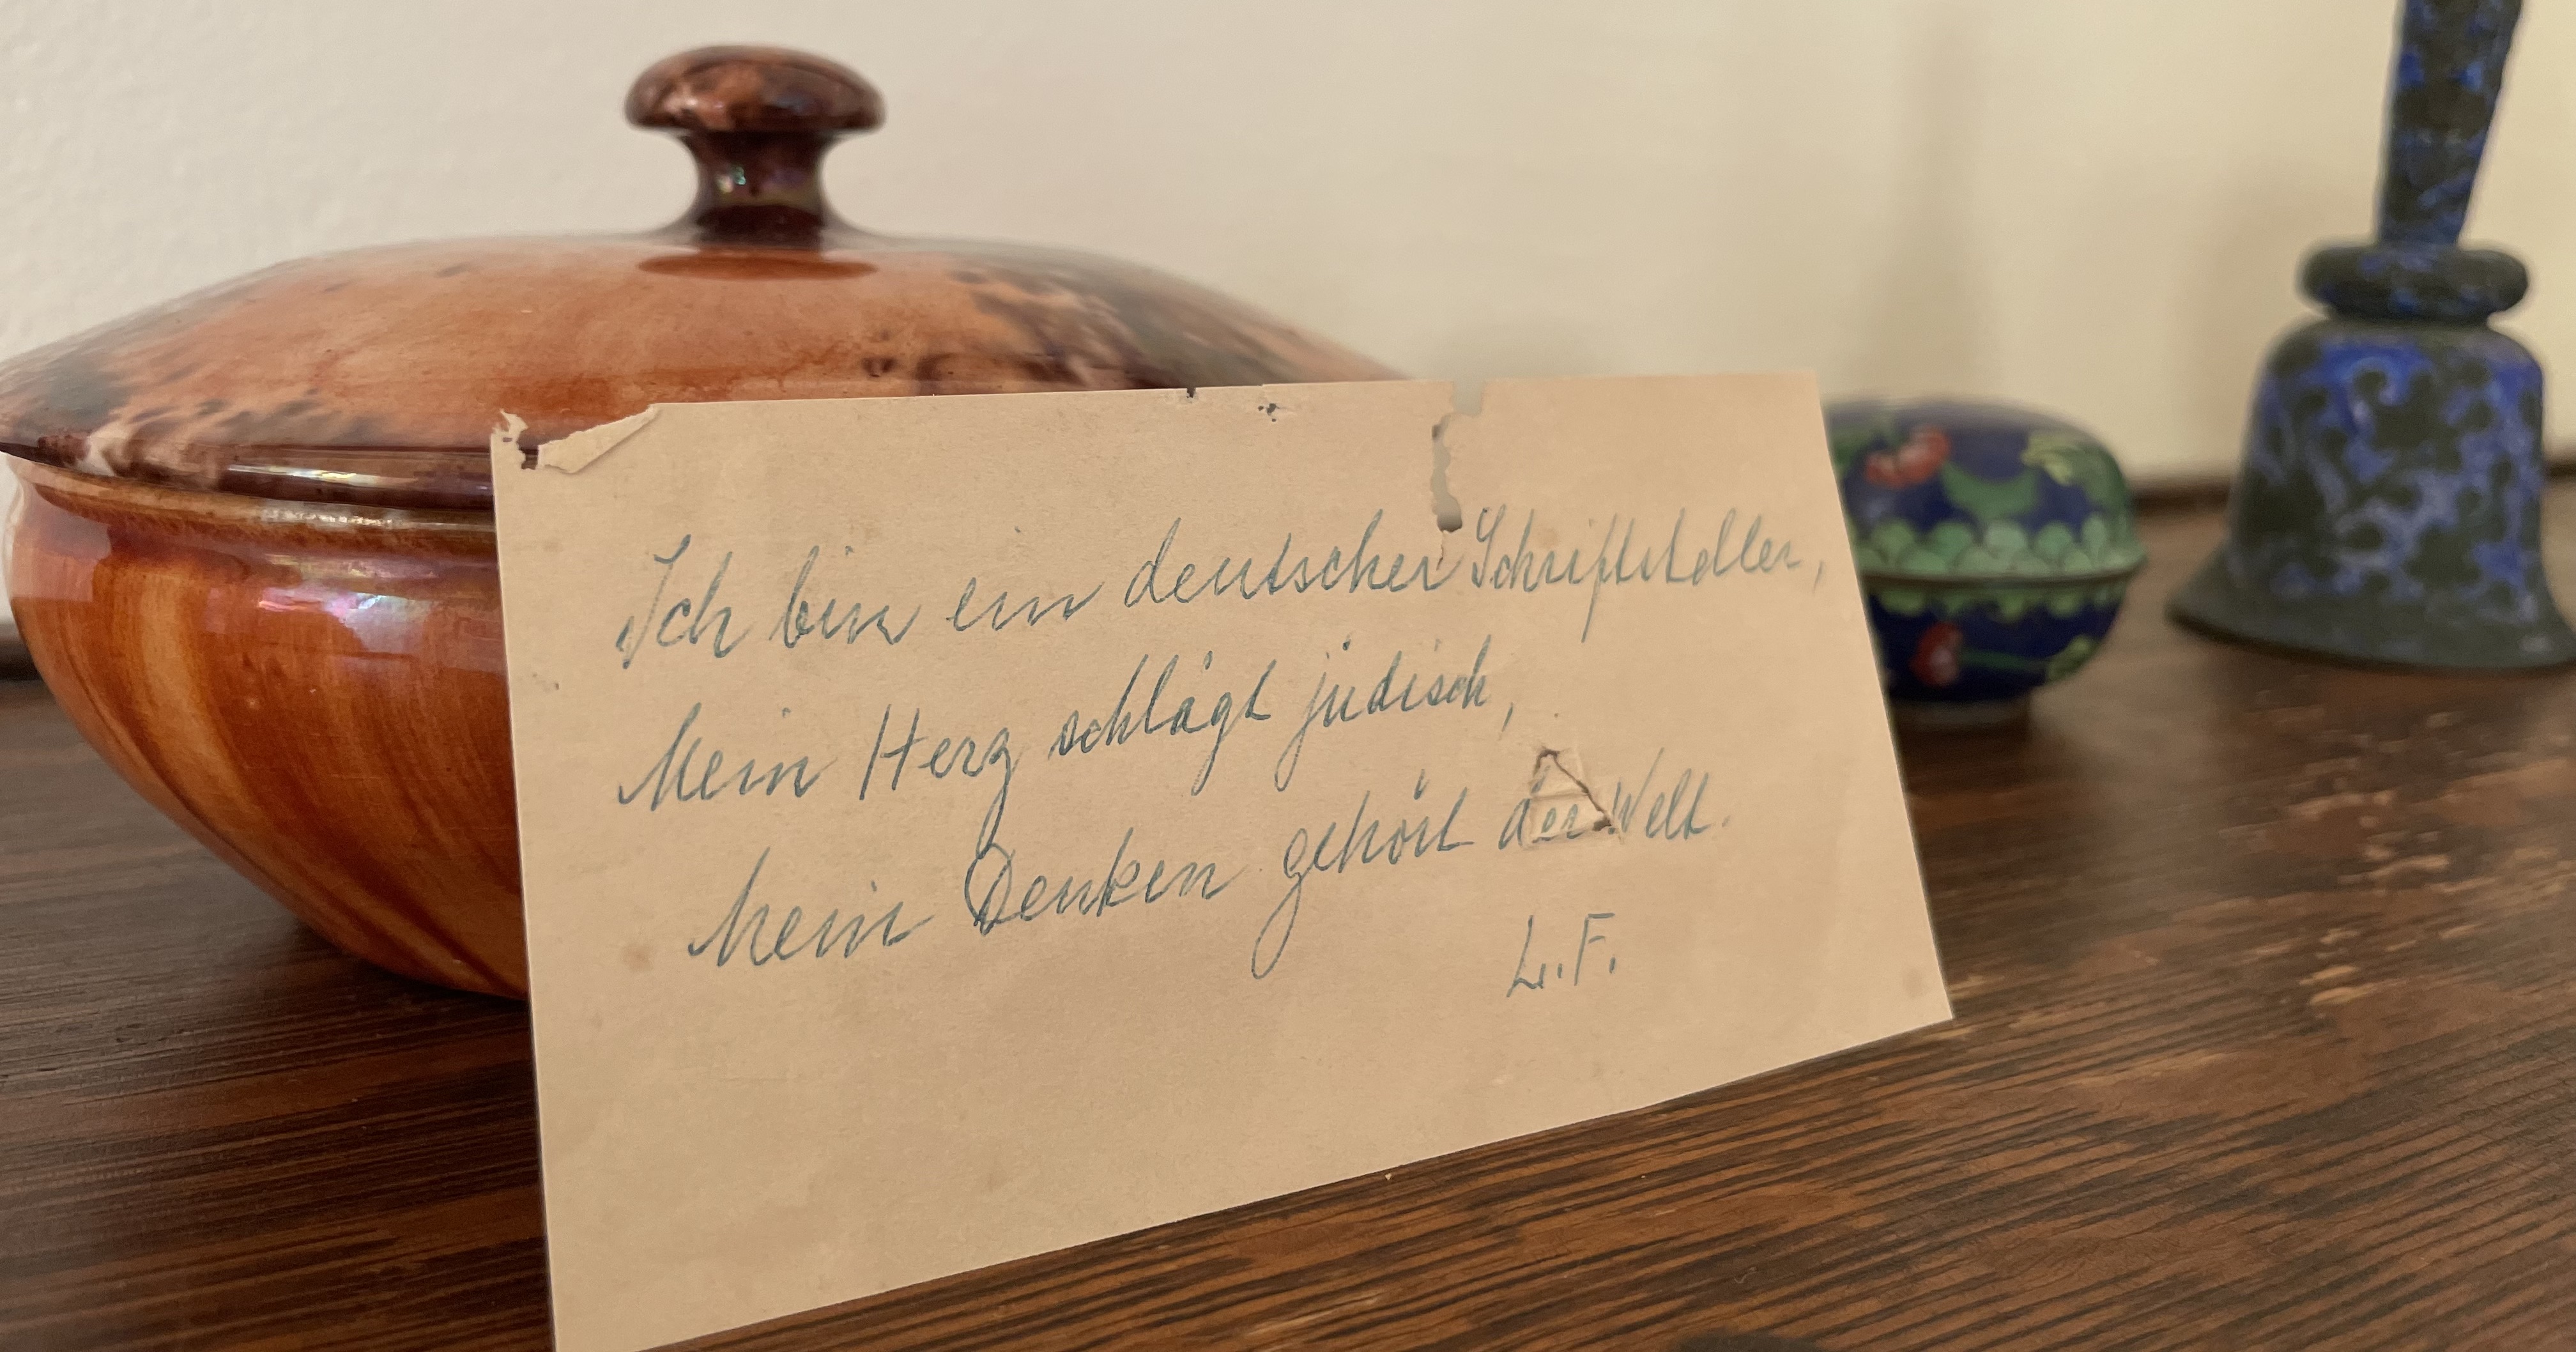 Ich bin ein deutscher Schriftsteller,
Mein Herz schlägt jüdisch,
Mein Denken gehört der Welt.
L.F.